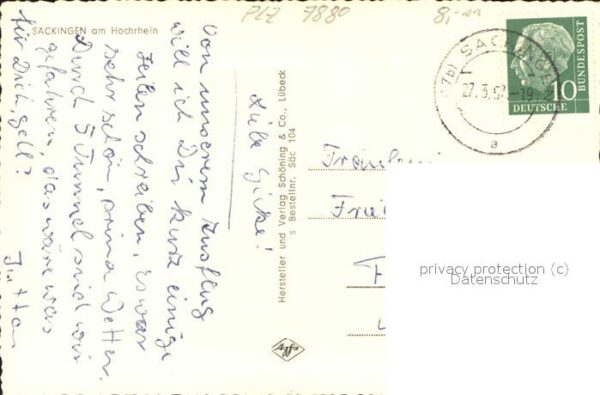 PLZ 7880
8,-
SÄCKINGEN am Hochrhein
Liebe
Von unserem Ausflug
will ich Dir kurz einige
Zeilen schreiben, es war
sehr schön, prima Wetter.
Durch 5 Tunnel sind wir
gefahren, das wäre was
für Dich gell?
Hersteller und Verlag Schöning & Co., Lübeck
s Bestellnr. Säc 104
Agfa
SÄCKINGEN
27.3.57-19
a
10
DEUTSCHE
BUNDESPOST
Fräulein
privacy protection (c)
Datenschutz